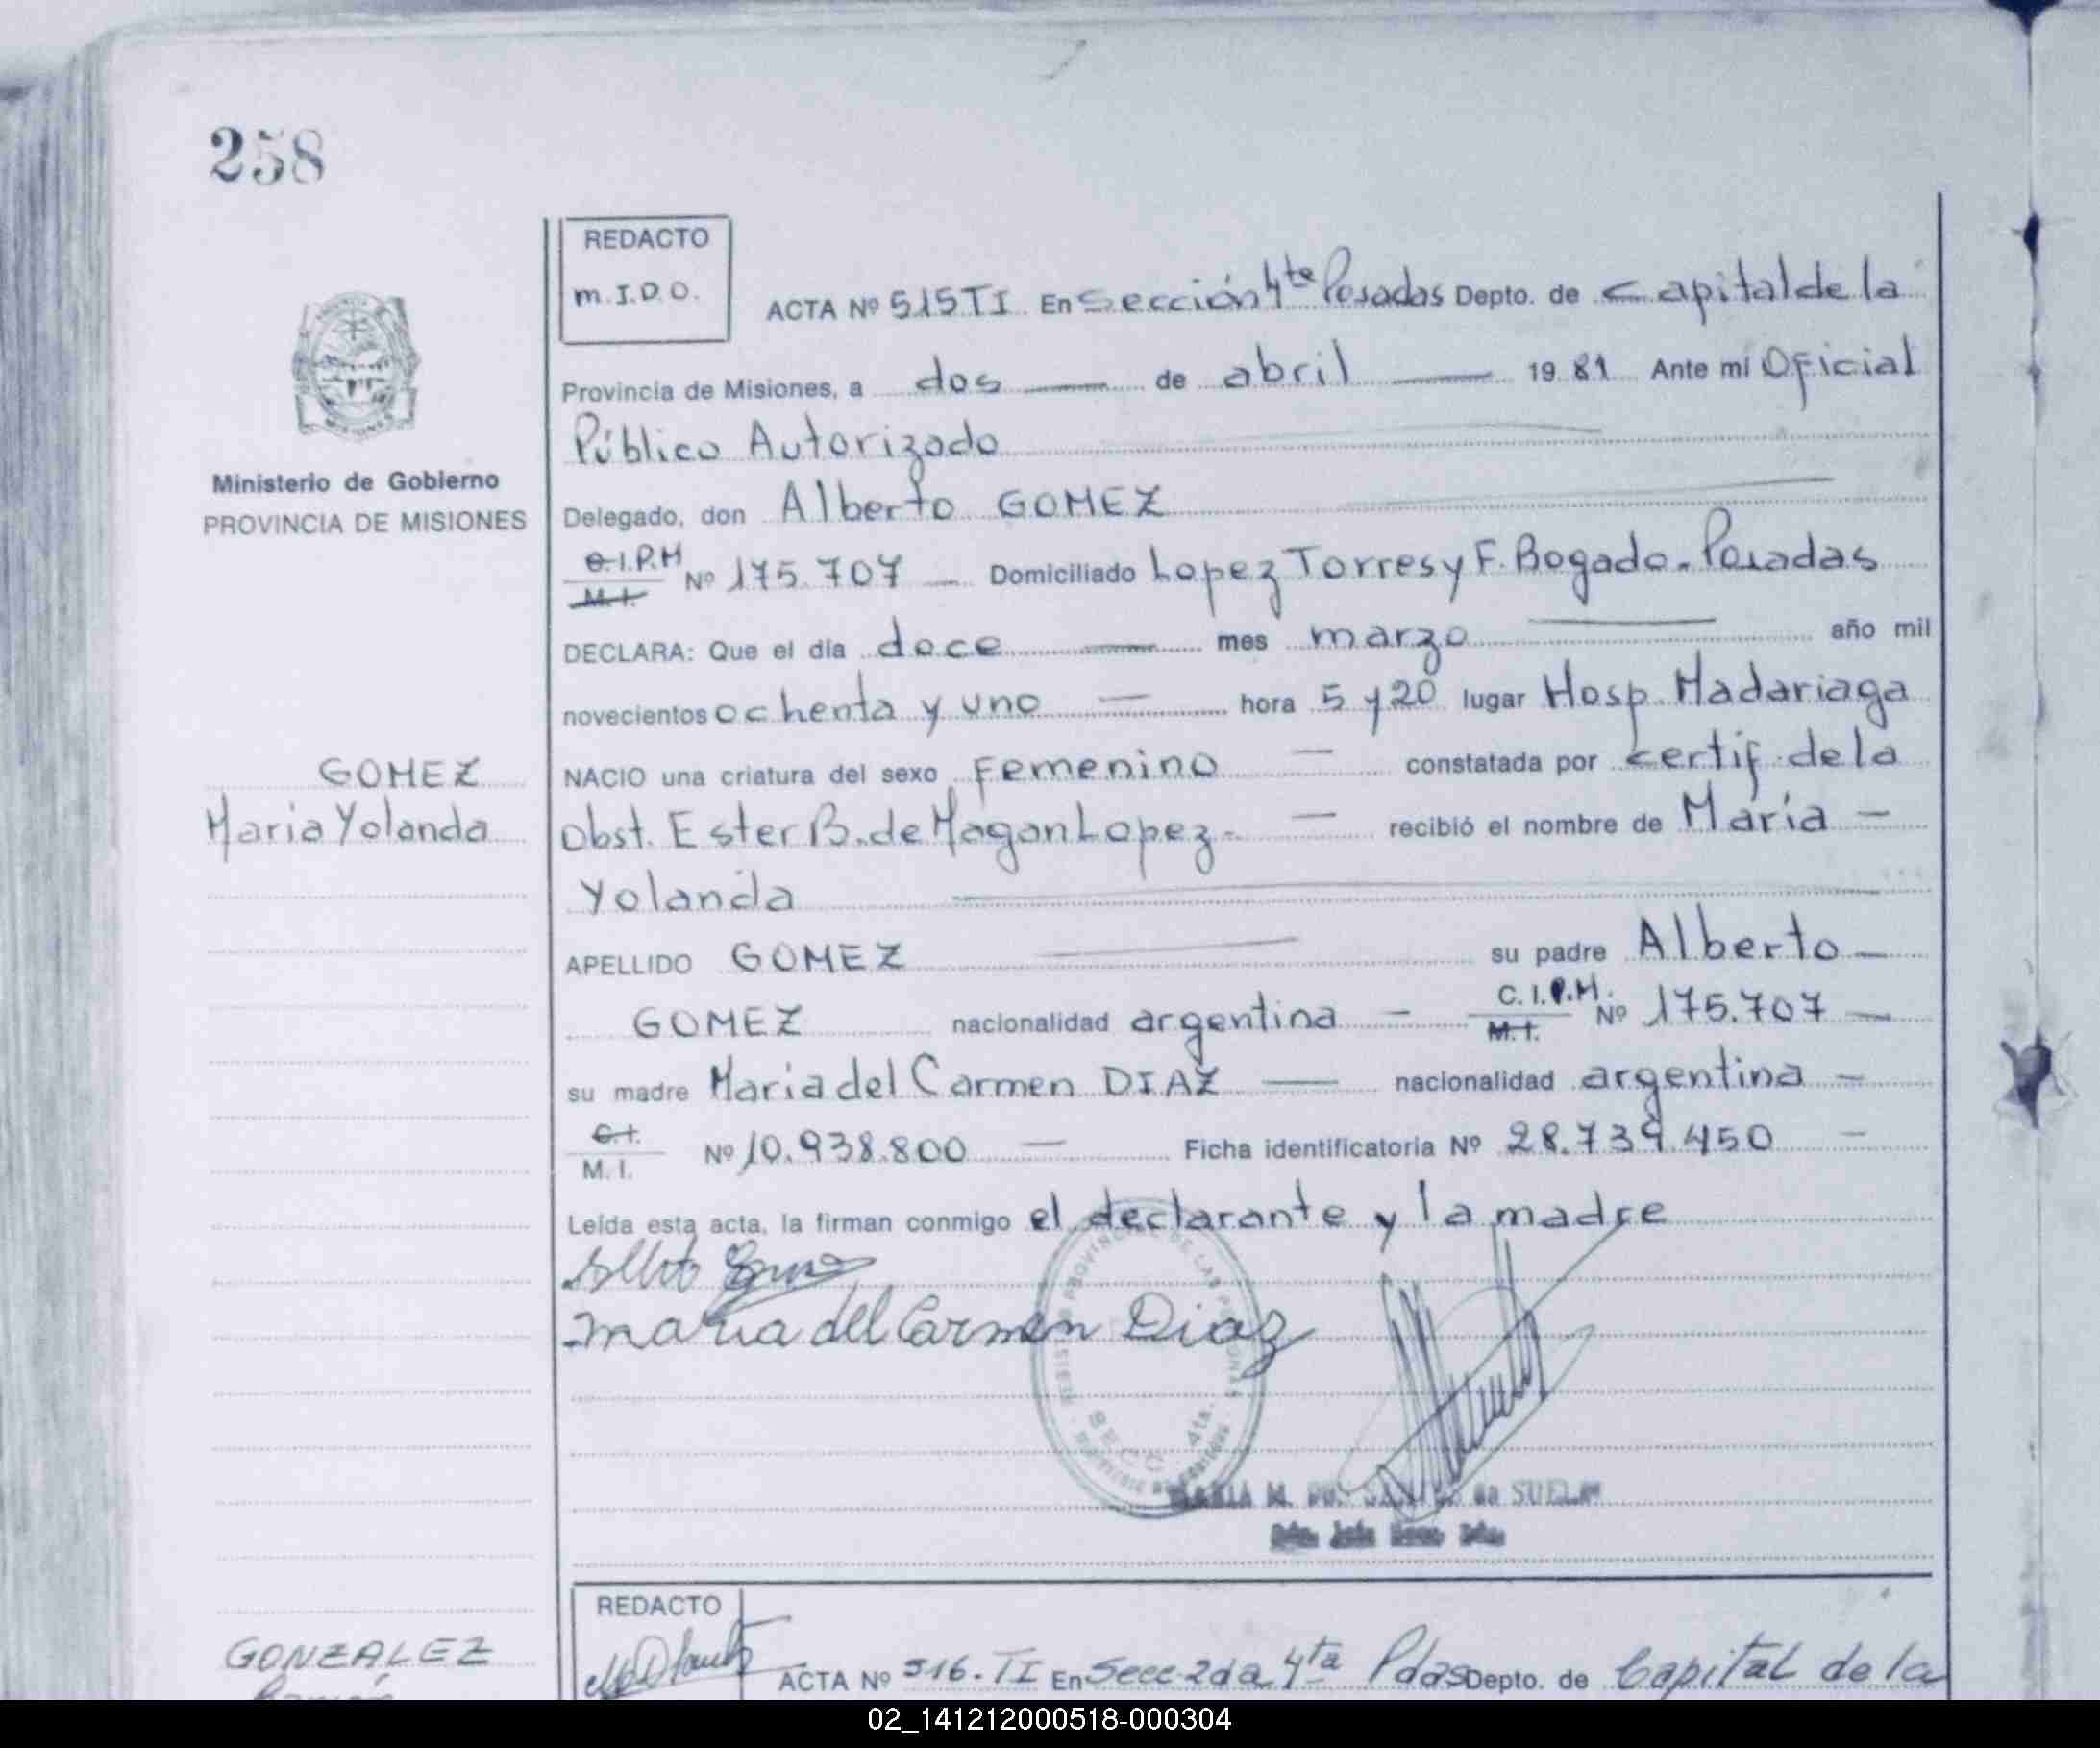 258
REDACTO
m.I.D.O.
ACTA Nº 515 TI En Sección 4te Posadas Depto. de Capital de la
Provincia de Misiones, a dos de abril 19 81 Ante mí Oficial
Público Autorizado
Ministerio de Gobierno
PROVINCIA DE MISIONES
Delegado, don Alberto GOMEZ
C.I.P.M
M.I.
Nº 175.707 Domiciliado Lopez Torres y F. Bogado. Posadas
DECLARA: Que el día doce mes marzo año mil
novecientos ochenta y uno hora 5 y 20 lugar Hosp. Madariaga
GOMEZ
Maria Yolanda
NACIO una criatura del sexo Femenino constatada por certif. de la
Obst. Ester B. de Magan Lopez- recibió el nombre de María
Yolanda
APELLIDO GOMEZ su padre Alberto
GOMEZ nacionalidad argentina C.I.P.M. M.I. Nº 175.707
su madre Maria del Carmen DIAZ nacionalidad argentina
C.I.
M.I.
Nº 10.938.800 Ficha identificatoria Nº 28.739.450
Leída esta acta, la firman conmigo el declarante y la madre
Maria del Carmen Diaz
REGISTRO PROVINCIAL DE LAS PERSONAS
SECC. 4ta.
MARIA M. de SUEL
REDACTO
GONZALEZ
Ramón
ACTA Nº 516. TI En Secc 2da 4ta Pdas Depto. de Capital de la
02_141212000518-000304